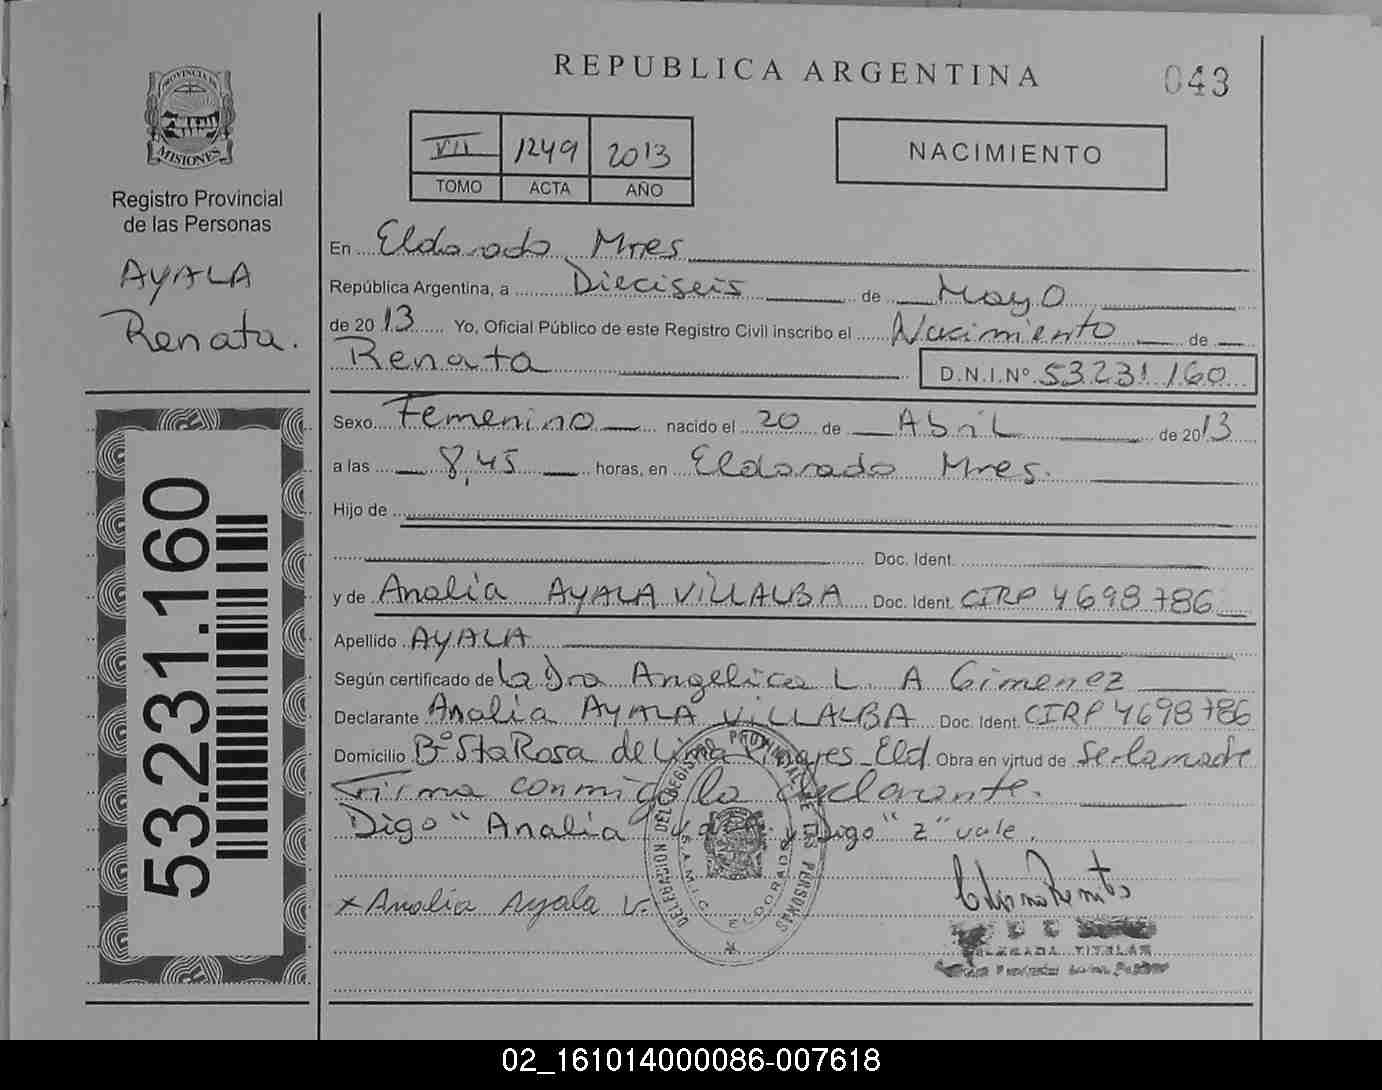 REPUBLICA ARGENTINA
043
PROVINCIA DE
MISIONES
Registro Provincial
de las Personas
AYALA
Renata.
VII 1249 2013
TOMO ACTA AÑO
NACIMIENTO
En Eldorado Mnes
República Argentina, a Dieciseis de Mayo
de 2013 Yo, Oficial Público de este Registro Civil inscribo el Nacimiento de
Renata D.N.I.Nº 53231160
Sexo Femenino nacido el 20 de Abril de 2013
a las 8,45 horas, en Eldorado Mnes.
Hijo de
Doc. Ident.
y de Analia AYALA VILLALBA Doc. Ident. CIRP 4698786
Apellido AYALA
Según certificado de la Dra Angelica L. A Gimenez
Declarante Analia AYALA VILLALBA Doc. Ident. CIRP 4698786
Domicilio Bº Sta Rosa de Lima Eld. Obra en virtud de Ser la madre
Firma conmigo la declarante.
Digo "Analia y Digo "z" vale.
x Analia Ayala V.
DELEGACION DEL REGISTRO PROVINCIAL DE LAS PERSONAS
S.A.M.I.C. ELDORADO
TITULAR
53.231.160
02_161014000086-007618